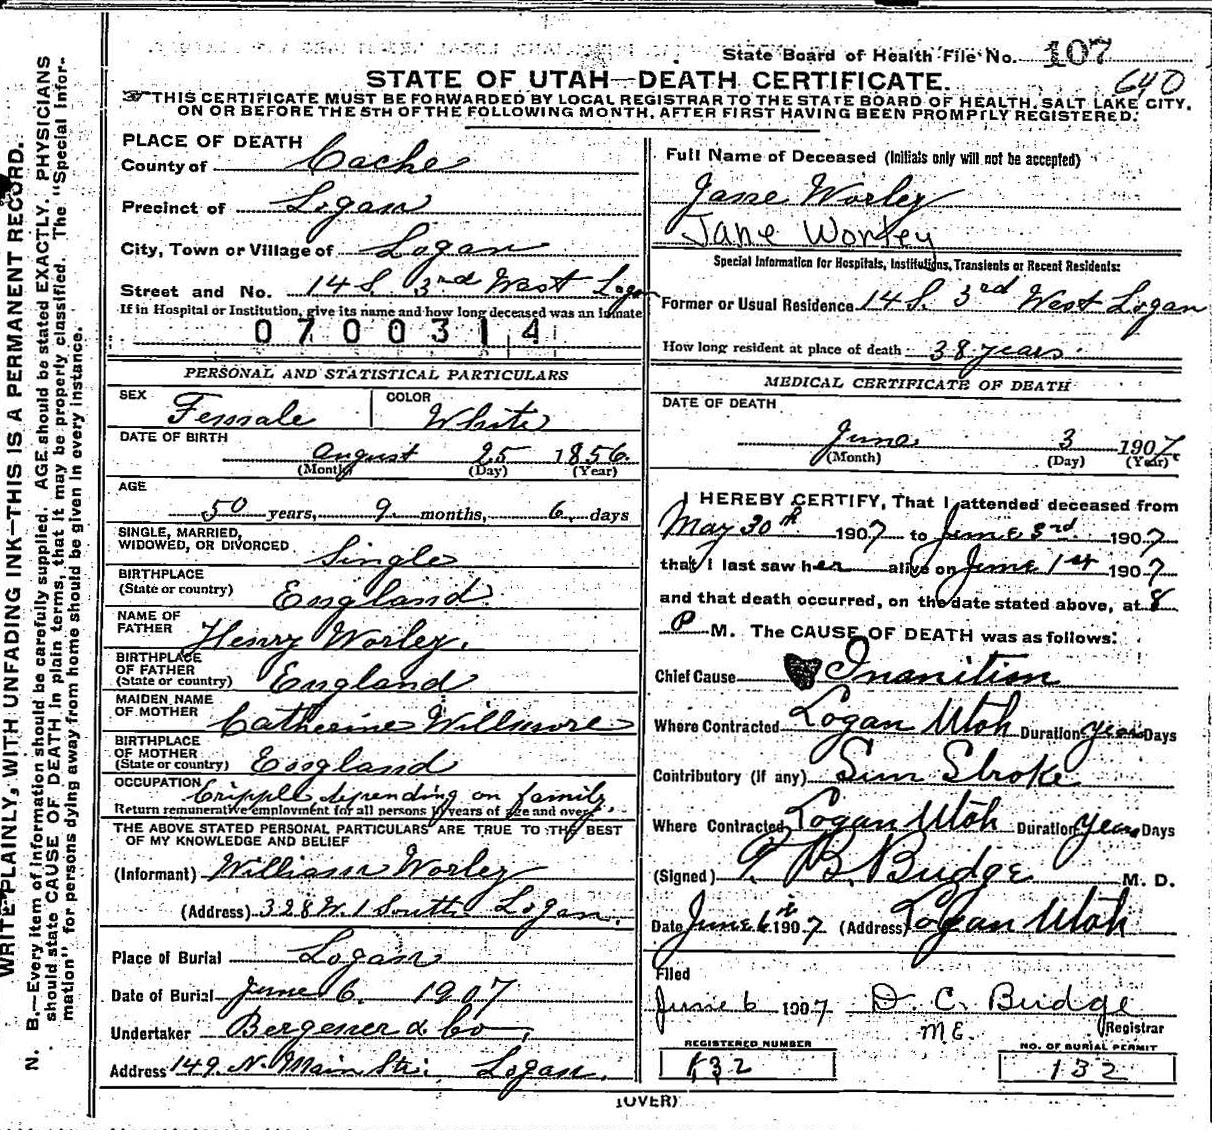 State Board of Health File No. 107
640
STATE OF UTAH—DEATH CERTIFICATE.
THIS CERTIFICATE MUST BE FORWARDED BY LOCAL REGISTRAR TO THE STATE BOARD OF HEALTH, SALT LAKE CITY,
ON OR BEFORE THE 5TH OF THE FOLLOWING MONTH, AFTER FIRST HAVING BEEN PROMPTLY REGISTERED.
WRITE PLAINLY, WITH UNFADING INK—THIS IS A PERMANENT RECORD.
N. B.—Every item of information should be carefully supplied. AGE should be stated EXACTLY. PHYSICIANS
should state CAUSE OF DEATH in plain terms, that it may be properly classified. The "Special Infor-
mation" for persons dying away from home should be given in every instance.
PLACE OF DEATH
County of Cache
Precinct of Logan
City, Town or Village of Logan
Street and No. 14 S. 3rd West Logan
If in Hospital or Institution, give its name and how long deceased was an Inmate
0700314
PERSONAL AND STATISTICAL PARTICULARS
SEX Female COLOR White
DATE OF BIRTH
August 25 1856
(Month) (Day) (Year)
AGE
50 years, 9 months, 6 days
SINGLE, MARRIED,
WIDOWED, OR DIVORCED Single
BIRTHPLACE
(State or country) England
NAME OF
FATHER Henry Worley.
BIRTHPLACE
OF FATHER
(State or country) England
MAIDEN NAME
OF MOTHER Catherine Willmore
BIRTHPLACE
OF MOTHER
(State or country) England
OCCUPATION Cripple depending on family.
Return remunerative employment for all persons 10 years of age and over
THE ABOVE STATED PERSONAL PARTICULARS ARE TRUE TO THE BEST
OF MY KNOWLEDGE AND BELIEF
(Informant) William Worley
(Address) 328 W. 1 South Logan.
Place of Burial Logan
Date of Burial June 6. 1907
Undertaker Bergener & Co.
Address 149 N. Main Str. Logan.
Full Name of Deceased (Initials only will not be accepted)
Jane Worley
Jane Worley
Special Information for Hospitals, Institutions, Transients or Recent Residents:
Former or Usual Residence 14 S. 3rd West Logan
How long resident at place of death 38 years.
MEDICAL CERTIFICATE OF DEATH
DATE OF DEATH
June 3 1907.
(Month) (Day) (Year)
I HEREBY CERTIFY, That I attended deceased from
May 30th 1907 to June 3rd 1907
that I last saw her alive on June 1st 1907
and that death occurred, on the date stated above, at 8
P M. The CAUSE OF DEATH was as follows:
Chief Cause Inanition
Where Contracted Logan Utah Duration years Days
Contributory (if any) Sun Stroke
Where Contracted Logan Utah Duration years Days
(Signed) T. B. Budge M. D.
Date June 6th 1907 (Address) Logan Utah
Filed
June 6 1907 D. C. Budge
M.E. Registrar
REGISTERED NUMBER
132
NO. OF BURIAL PERMIT
132
(OVER)